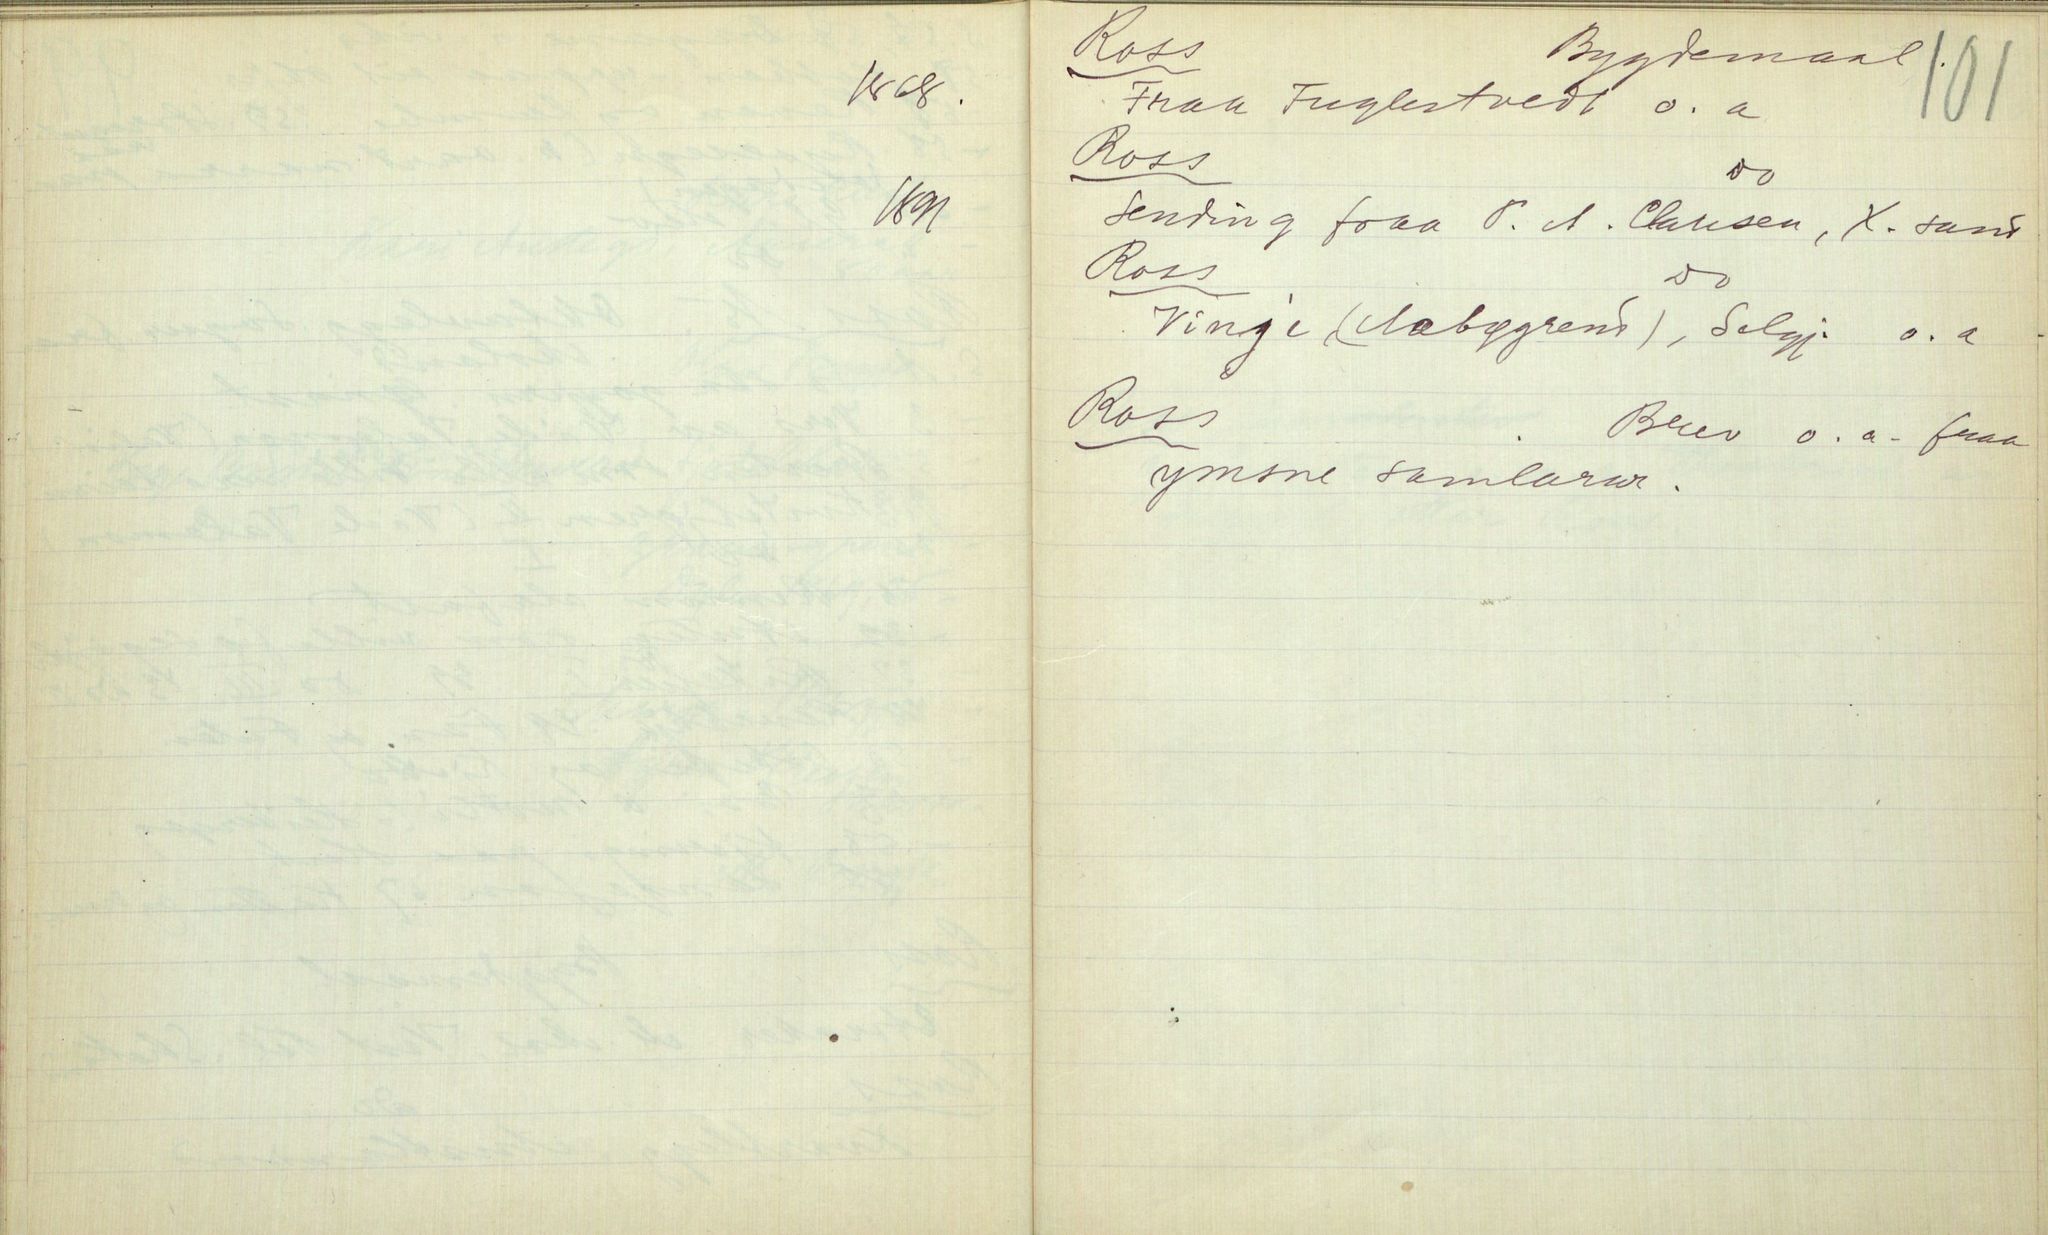 1868.
1891
Ross Bygdemaal. 101
Fraa Fuglestvedt o. a
Ross do
Sending fraa P. A. Clausen, X. sand
Ross do
Vinje (Aabygrend), Selgj. o. a
Ross Brev o. a. fraa
ymsne samlarar.